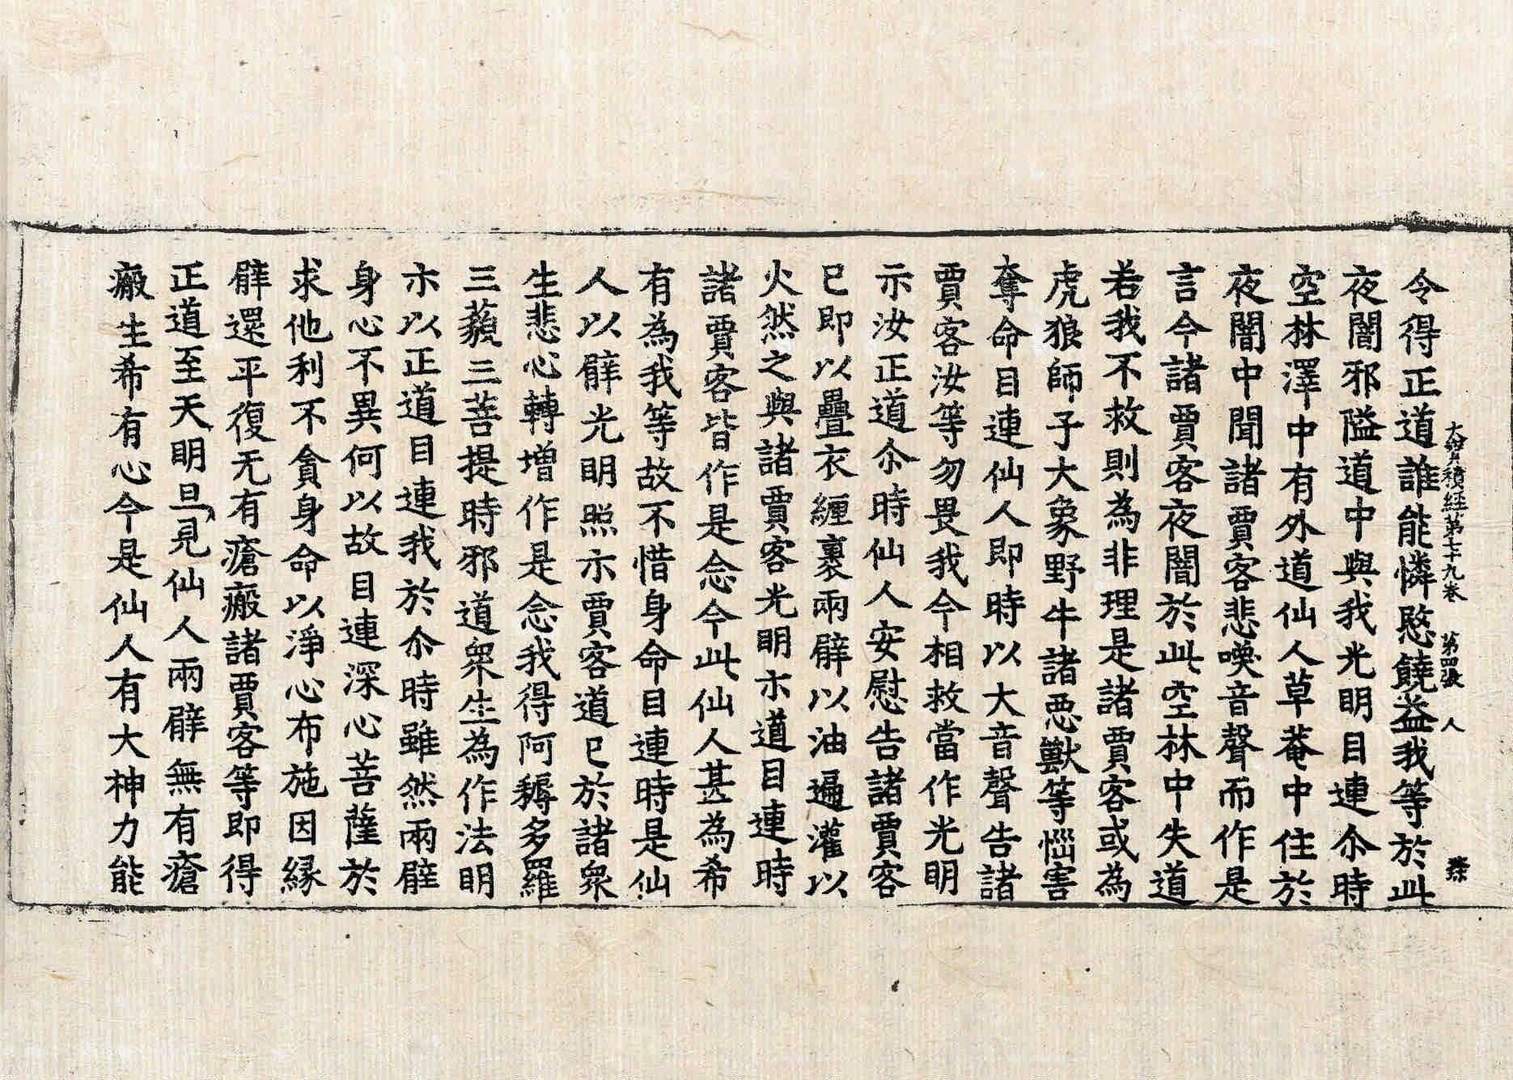 大寶積經第七十九卷 第四張 人
令得正道誰能憐愍饒益我等於此
夜闇邪隘道中與我光明目連尒時
空林澤中有外道仙人草菴中住於
夜闇中聞諸賈客悲喚音聲而作是
言今諸賈客夜闇於此空林中失道
若我不救則為非理是諸賈客或為
虎狼師子大象野牛諸惡獸等惱害
奪命目連仙人即時以大音聲告諸
賈客汝等勿畏我今相救當作光明
示汝正道尒時仙人安慰告諸賈客
已即以疊衣纏裹兩臂以油遍灌以
火然之與諸賈客光明示道目連時
諸賈客皆作是念今此仙人甚為希
有為我等故不惜身命目連時是仙
人以臂光明照示賈客道已於諸衆
生悲心轉增作是念我得阿耨多羅
三藐三菩提時邪道衆生為作法明
示以正道目連我於尒時雖然兩臂
身心不異何以故目連深心菩薩於
求他利不貪身命以淨心布施因緣
臂還平復无有瘡瘢諸賈客等即得
正道至天明旦見仙人兩臂無有瘡
瘢生希有心今是仙人有大神力能